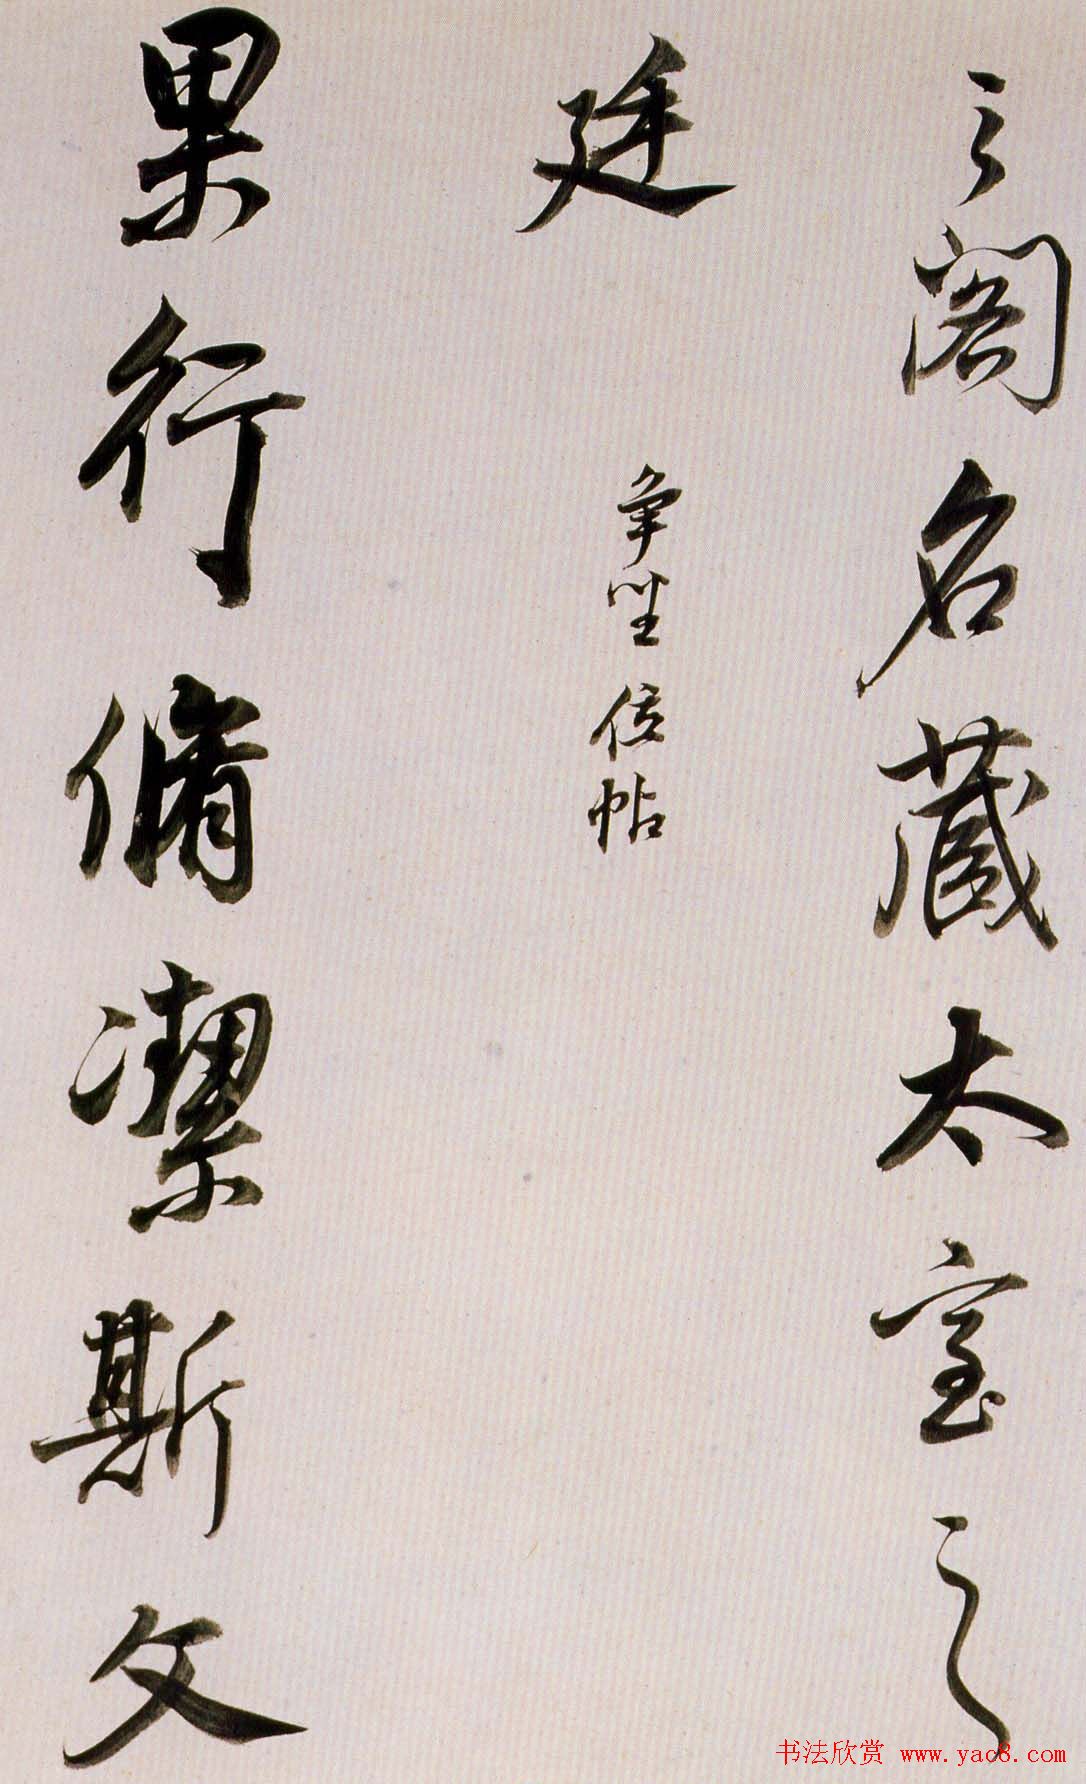 之阁名藏太室之
廷
争坐位帖
果行脩潔斯文
书法欣赏 www.yac8.com